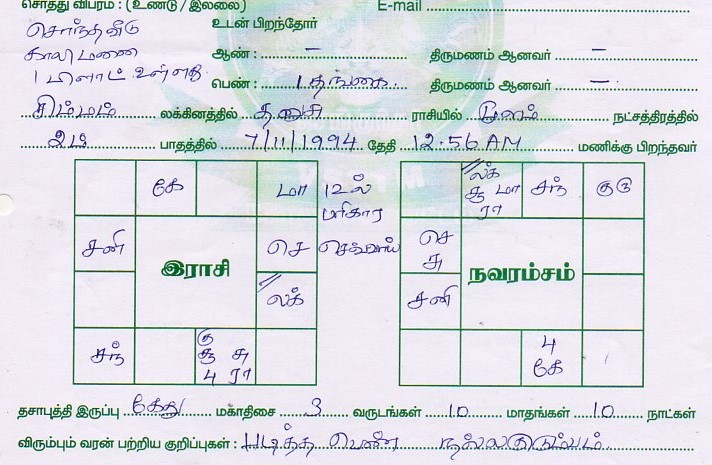 சொத்து விபரம் : (உண்டு / இல்லை) E-mail
சொந்த வீடு உடன் பிறந்தோர்
காலி மனை ஆண் : – திருமணம் ஆனவர் –
1 பிளாட் உள்ளது பெண் : 1 தங்கை திருமணம் ஆனவர் –
சிம்மம் லக்கினத்தில் தனுசு ராசியில் மூலம் நட்சத்திரத்தில்
2ம் பாதத்தில் 7/11/1994 தேதி 12.56 AM மணிக்கு பிறந்தவர்
கே மா 12ல் பரிகார லக் சூ மா ரா சந் குரு
சனி செ செவ்வாய் செ சு
இராசி நவரம்சம்
லக் சனி
சந் கு சூ சு 4 ரா 4 கே
தசாபுத்தி இருப்பு கேது மகாதிசை 3 வருடங்கள் 10 மாதங்கள் 10 நாட்கள்
விரும்பும் வரன் பற்றிய குறிப்புகள் : படித்த பெண் நல்லகுடும்பம்